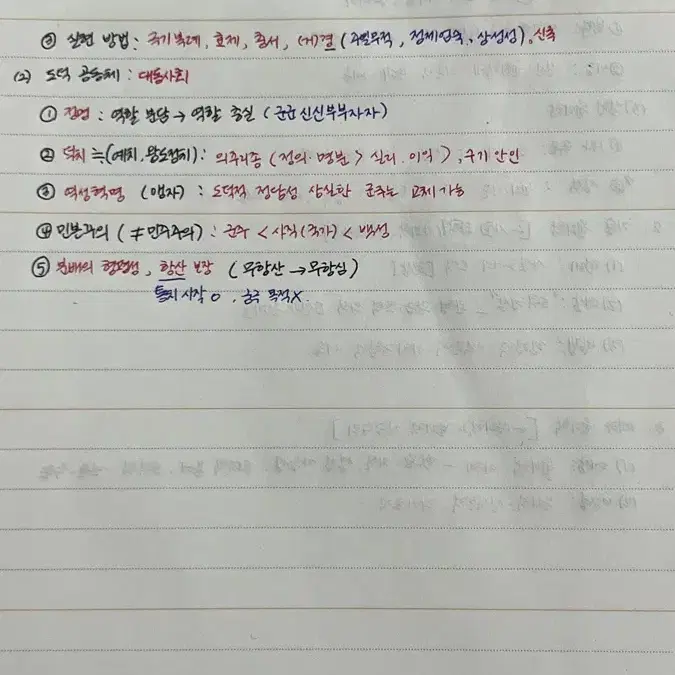 ③ 실현 방법: 극기복례, 효제, 충서, (거)경 (주일무적, 정제엄숙, 상성성), 신독
(2) 도덕 공동체 : 대동사회
① 정명 : 역할 분담 → 역할 충실 (군군신신부부자자)
② 덕치 ≒ (예치, 왕도정치) : 의주리종 (정의·명분 > 실리·이익), 수기안인
③ 역성혁명 (맹자) : 도덕적 정당성 상실한 군주는 교체 가능
④ 민본주의 (≠ 민주주의) : 군주 < 사직(국가) < 백성
⑤ 분배의 형평성, 항산 보장 (무항산 → 무항심)
통치 시작 O, 궁극 목적 X.